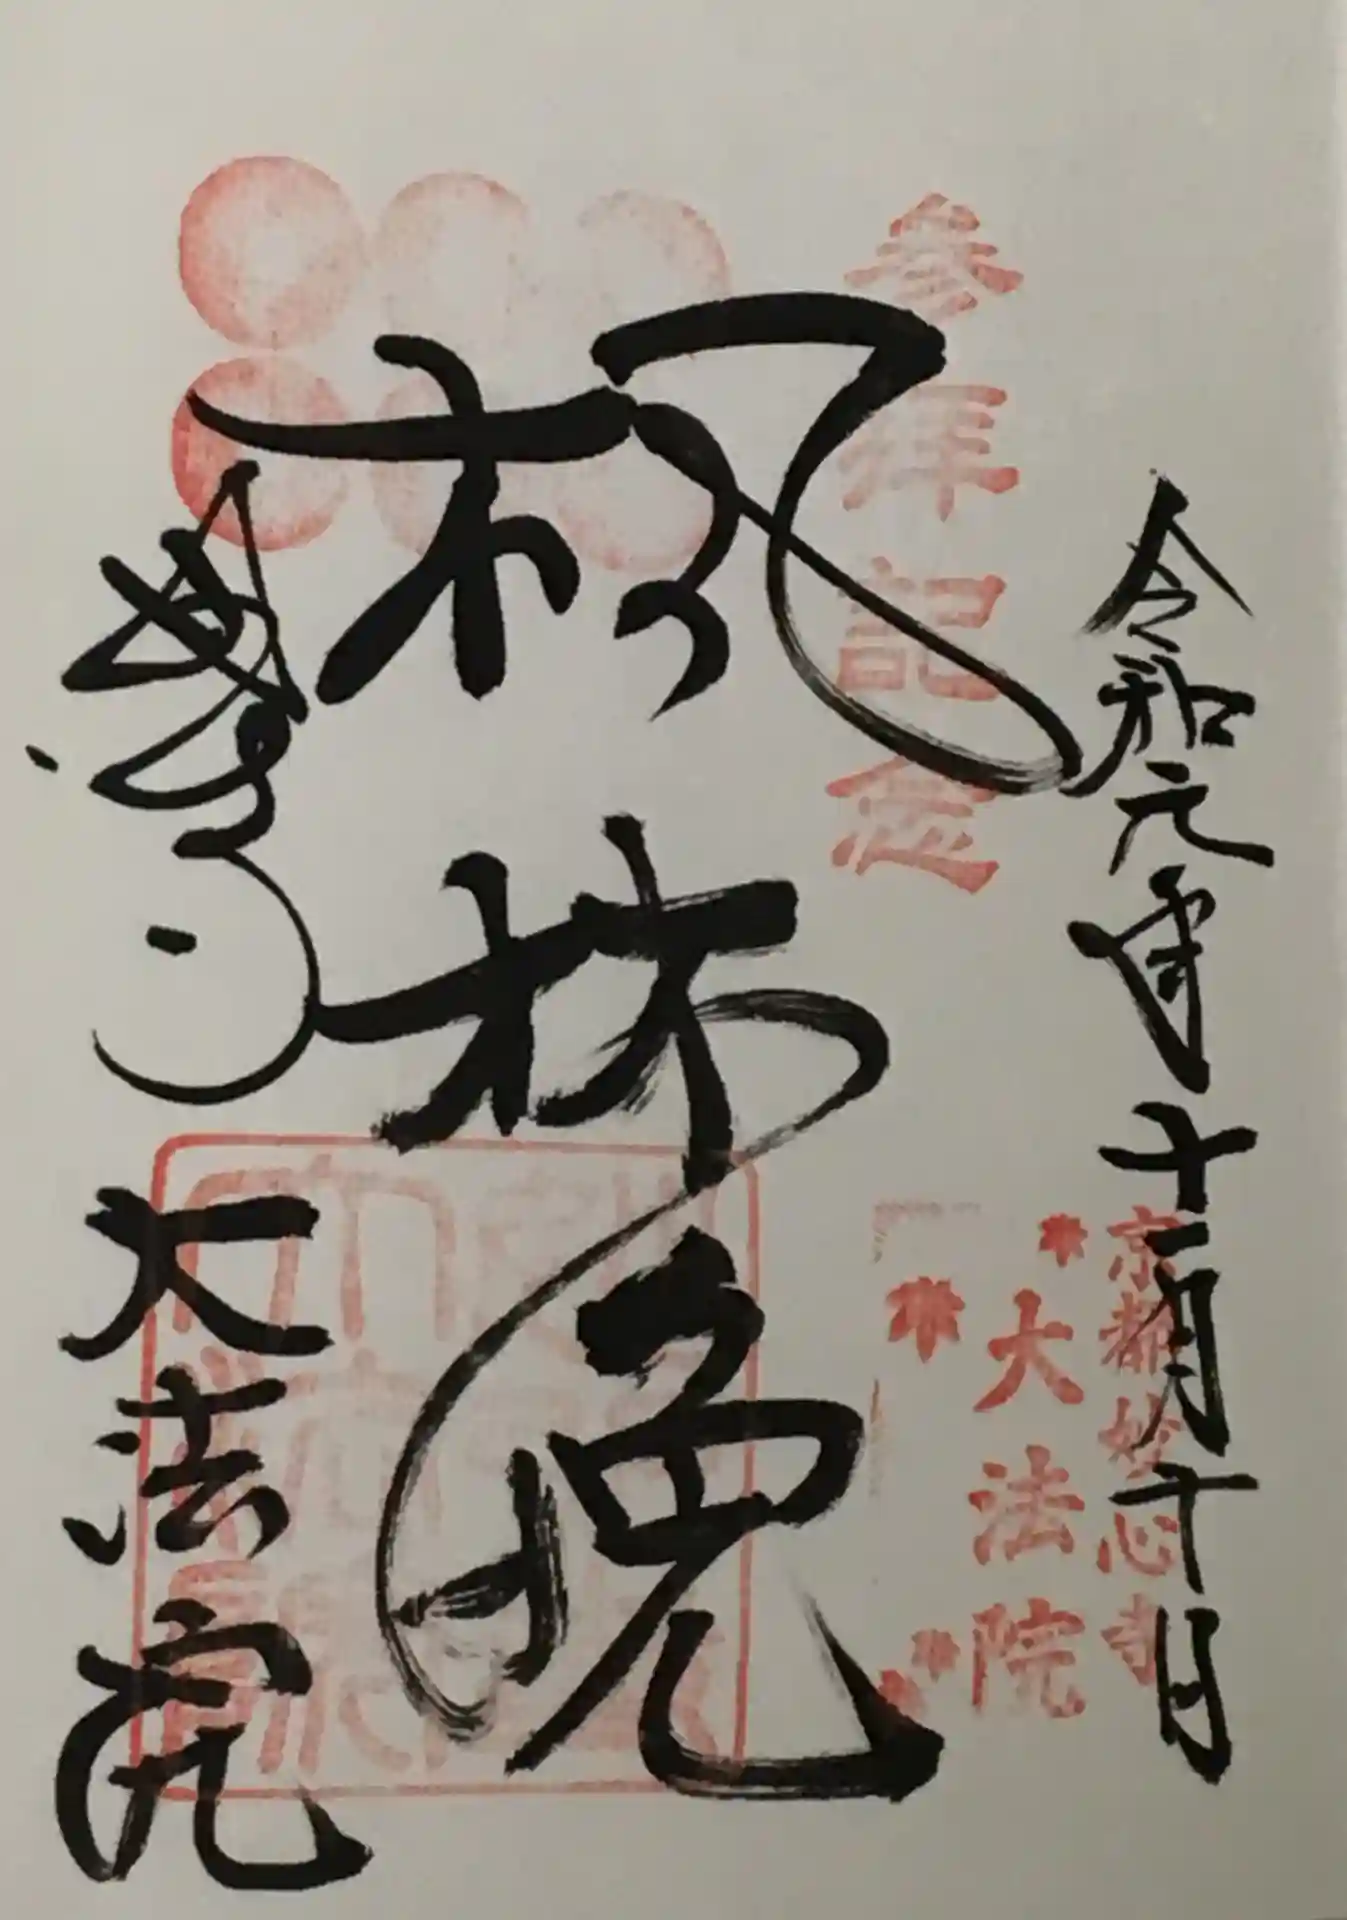 令和元年十一月十日
参拝記念
京都妙心寺
大法院
楓林晩
大法院